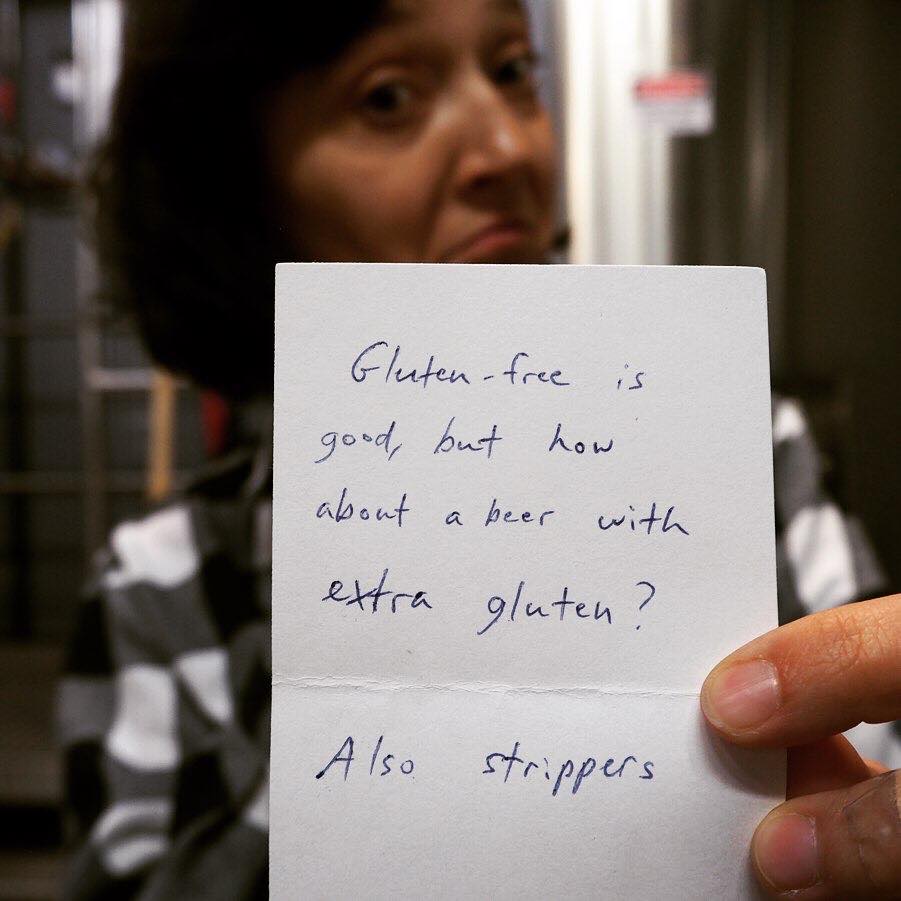 Gluten-free is
good, but how
about a beer with
extra gluten?
Also strippers